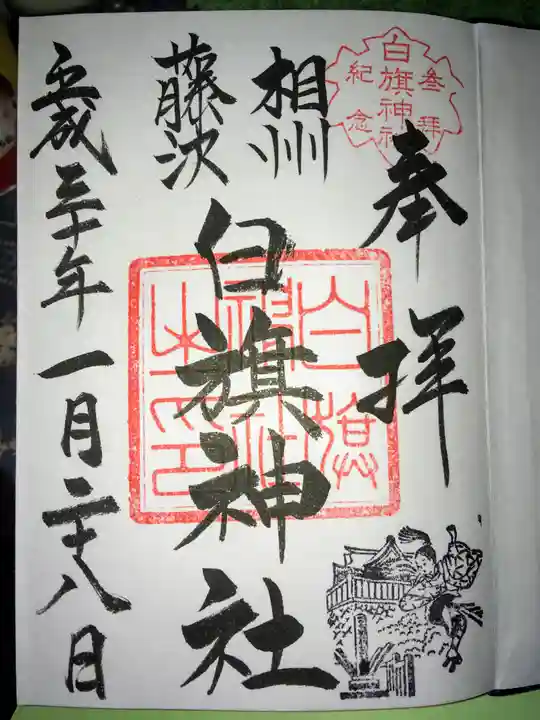 奉拝
参拝
白旗神社
紀念
相州
藤沢
白旗神社
白旗
神社
之印
平成三十年一月二十八日